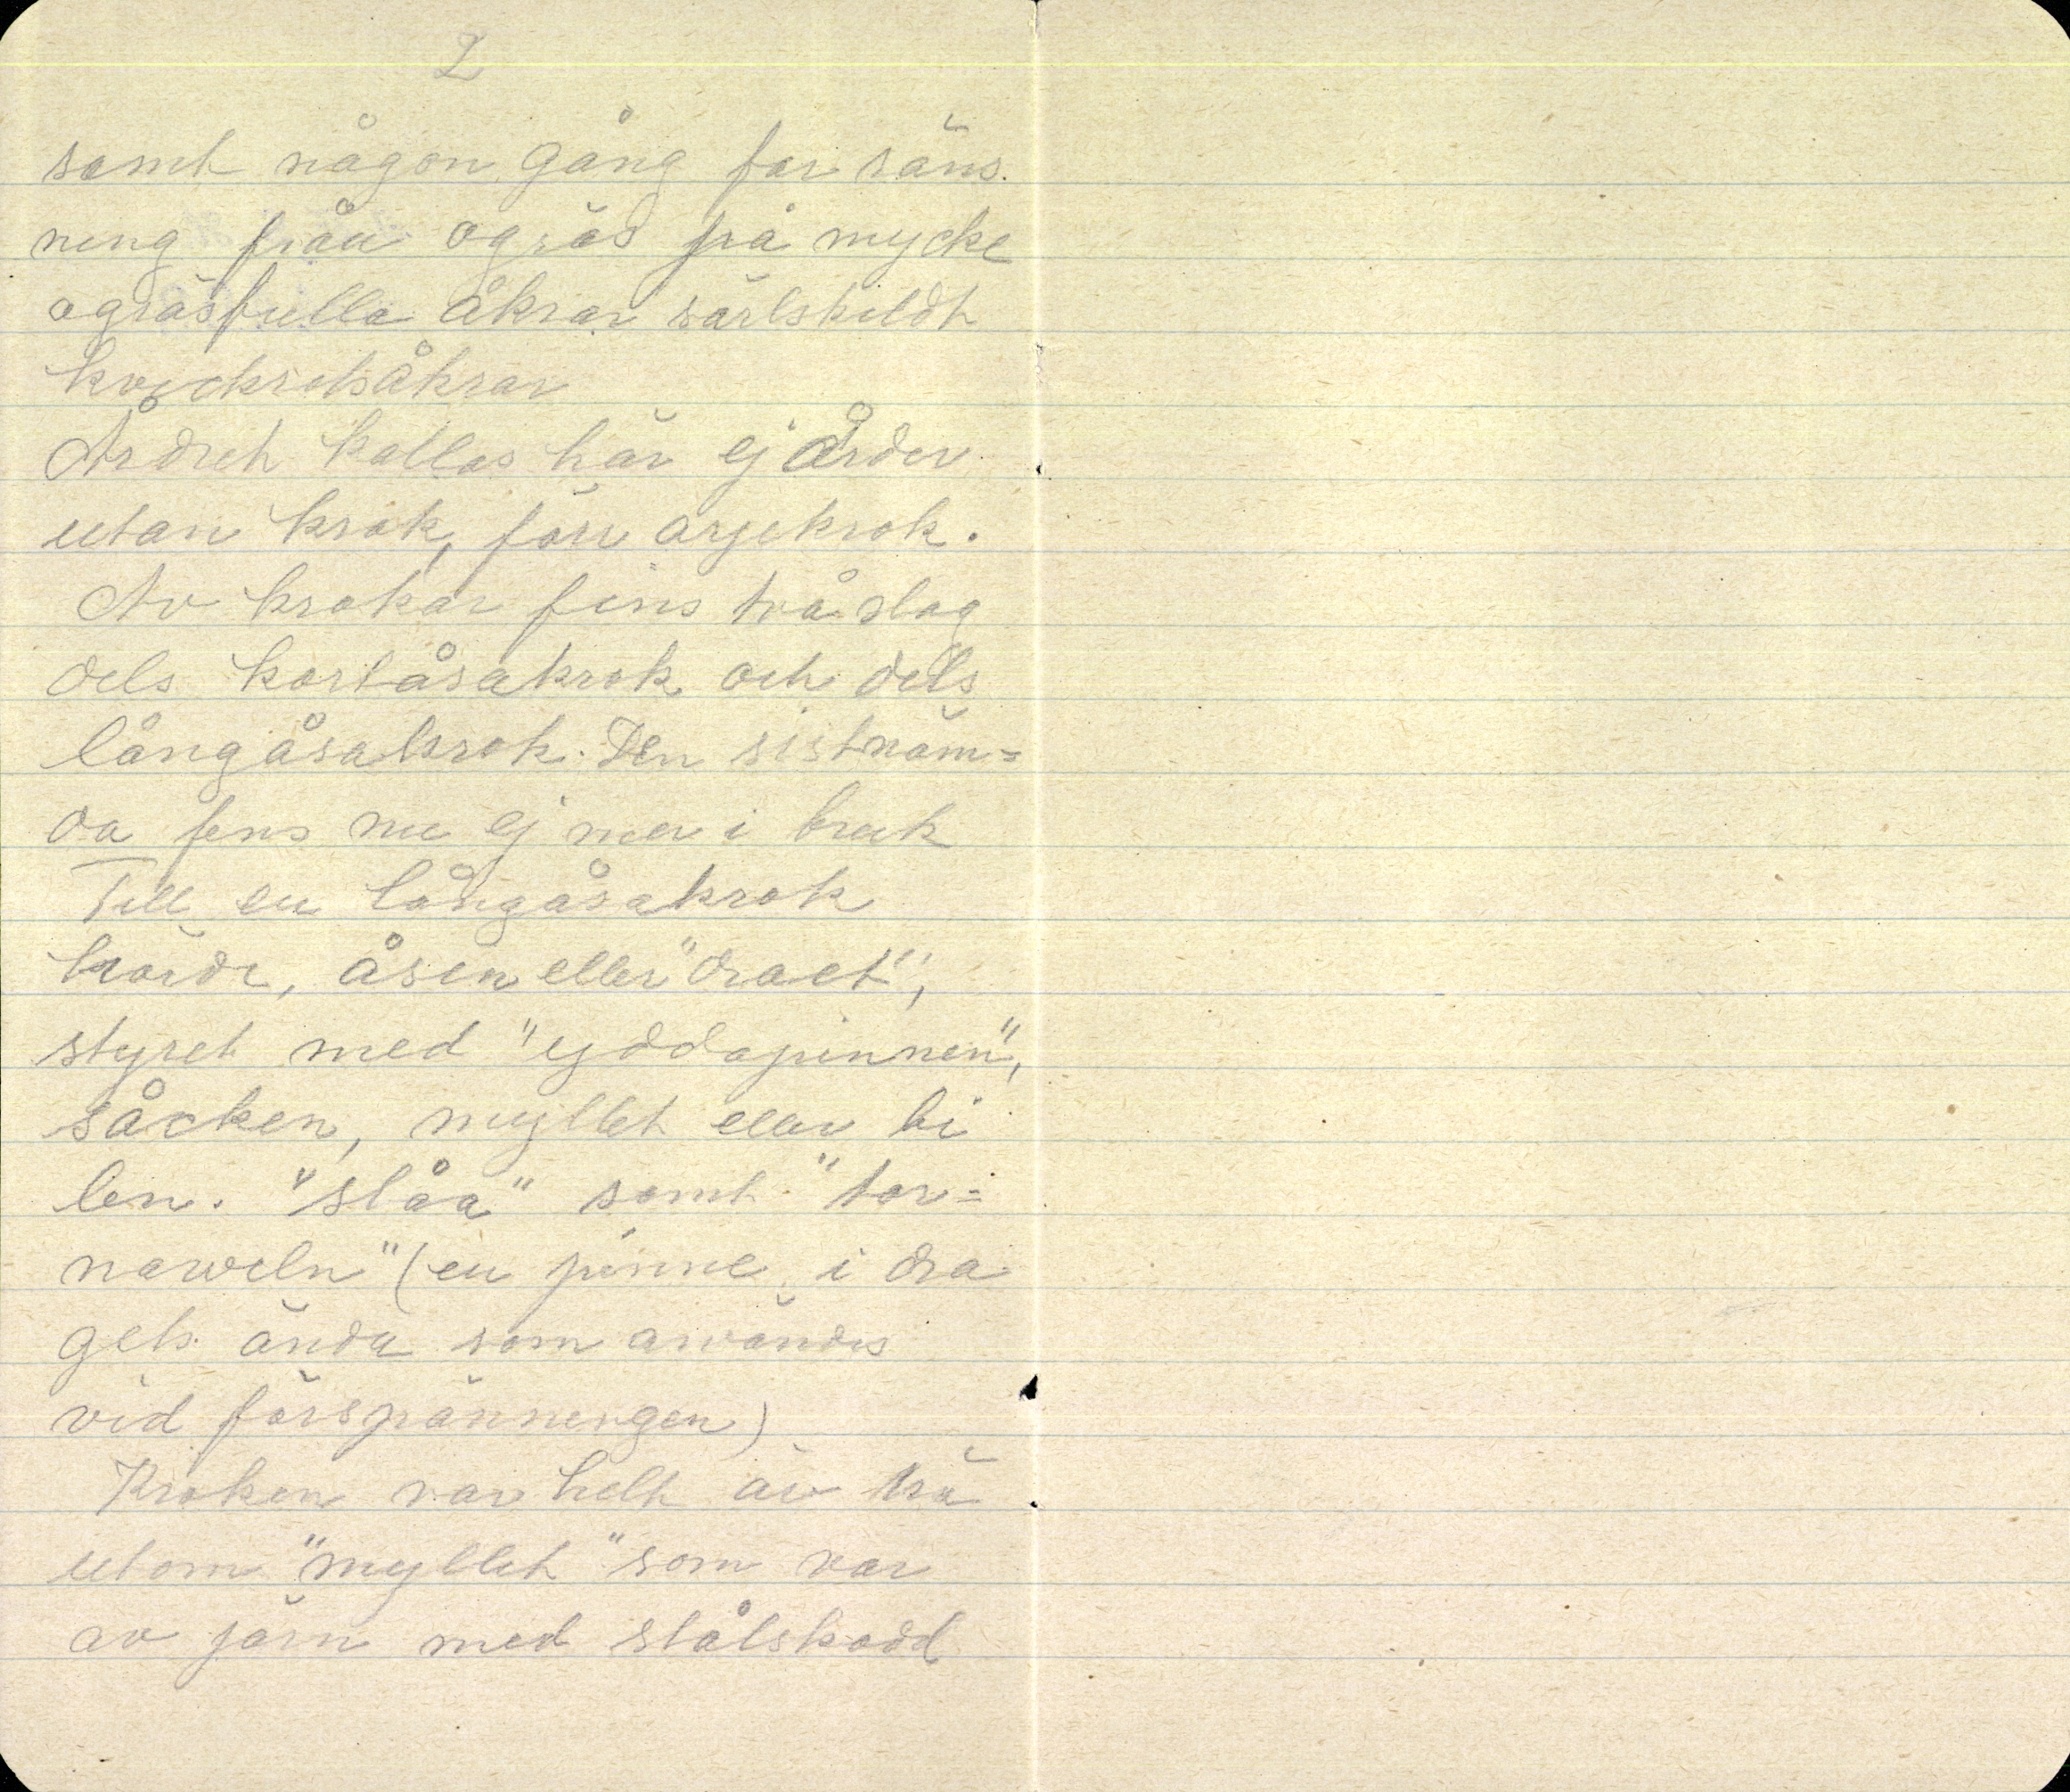 2
samt någon gång för räns-
ning från ogräs på mycke
ogräsfulla åkrar särlskildt
kvickrotsåkrar
Årdret kallas här ej årder
utan krok, förr arjekrok.
Av krokar fins två slag
dels kortåsakrok och dels
långåsakrok. Den sistnäm=
da fins nu ej mer i bruk
Till en långåsakrok
hörde, åsen eller "draet",
styret med "yddapinnen",
såcken, myllet eller bi
len. "slåa" samt "tor=
naveln" (en pinne i dra
gets ända som användes
vid förspänningen)
Kroken var helt av trä
utom "myllet" som var
av järn med stålskodd